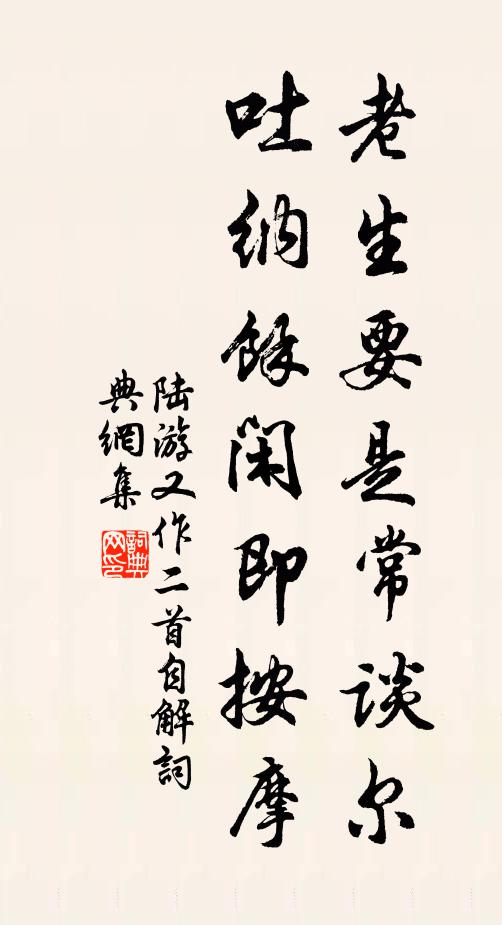 老生要是常談尔
吐納餘閑即按摩
陆游又作二首自解詞
典網集
詞典网印